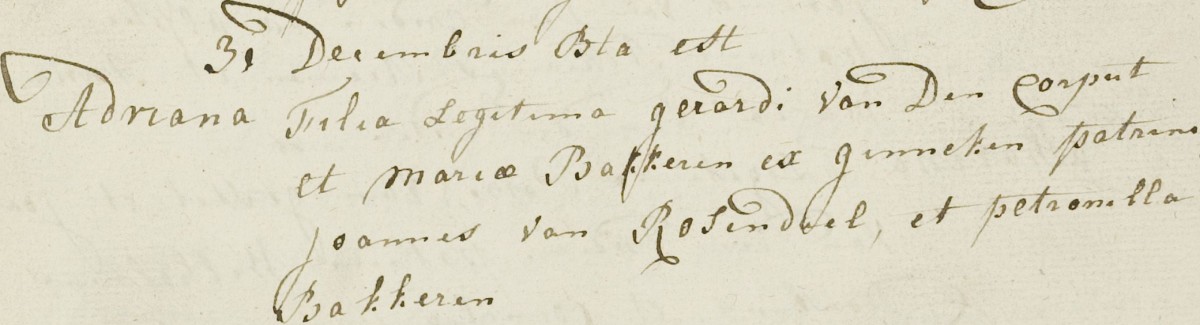 31 Decembris Bta est
Adriana Filia Legitima gerardi Van Den Corput
et Mariæ Bakkeren ex ginneken patrini
Joannes van Rosendael, et petronella
Bakkeren